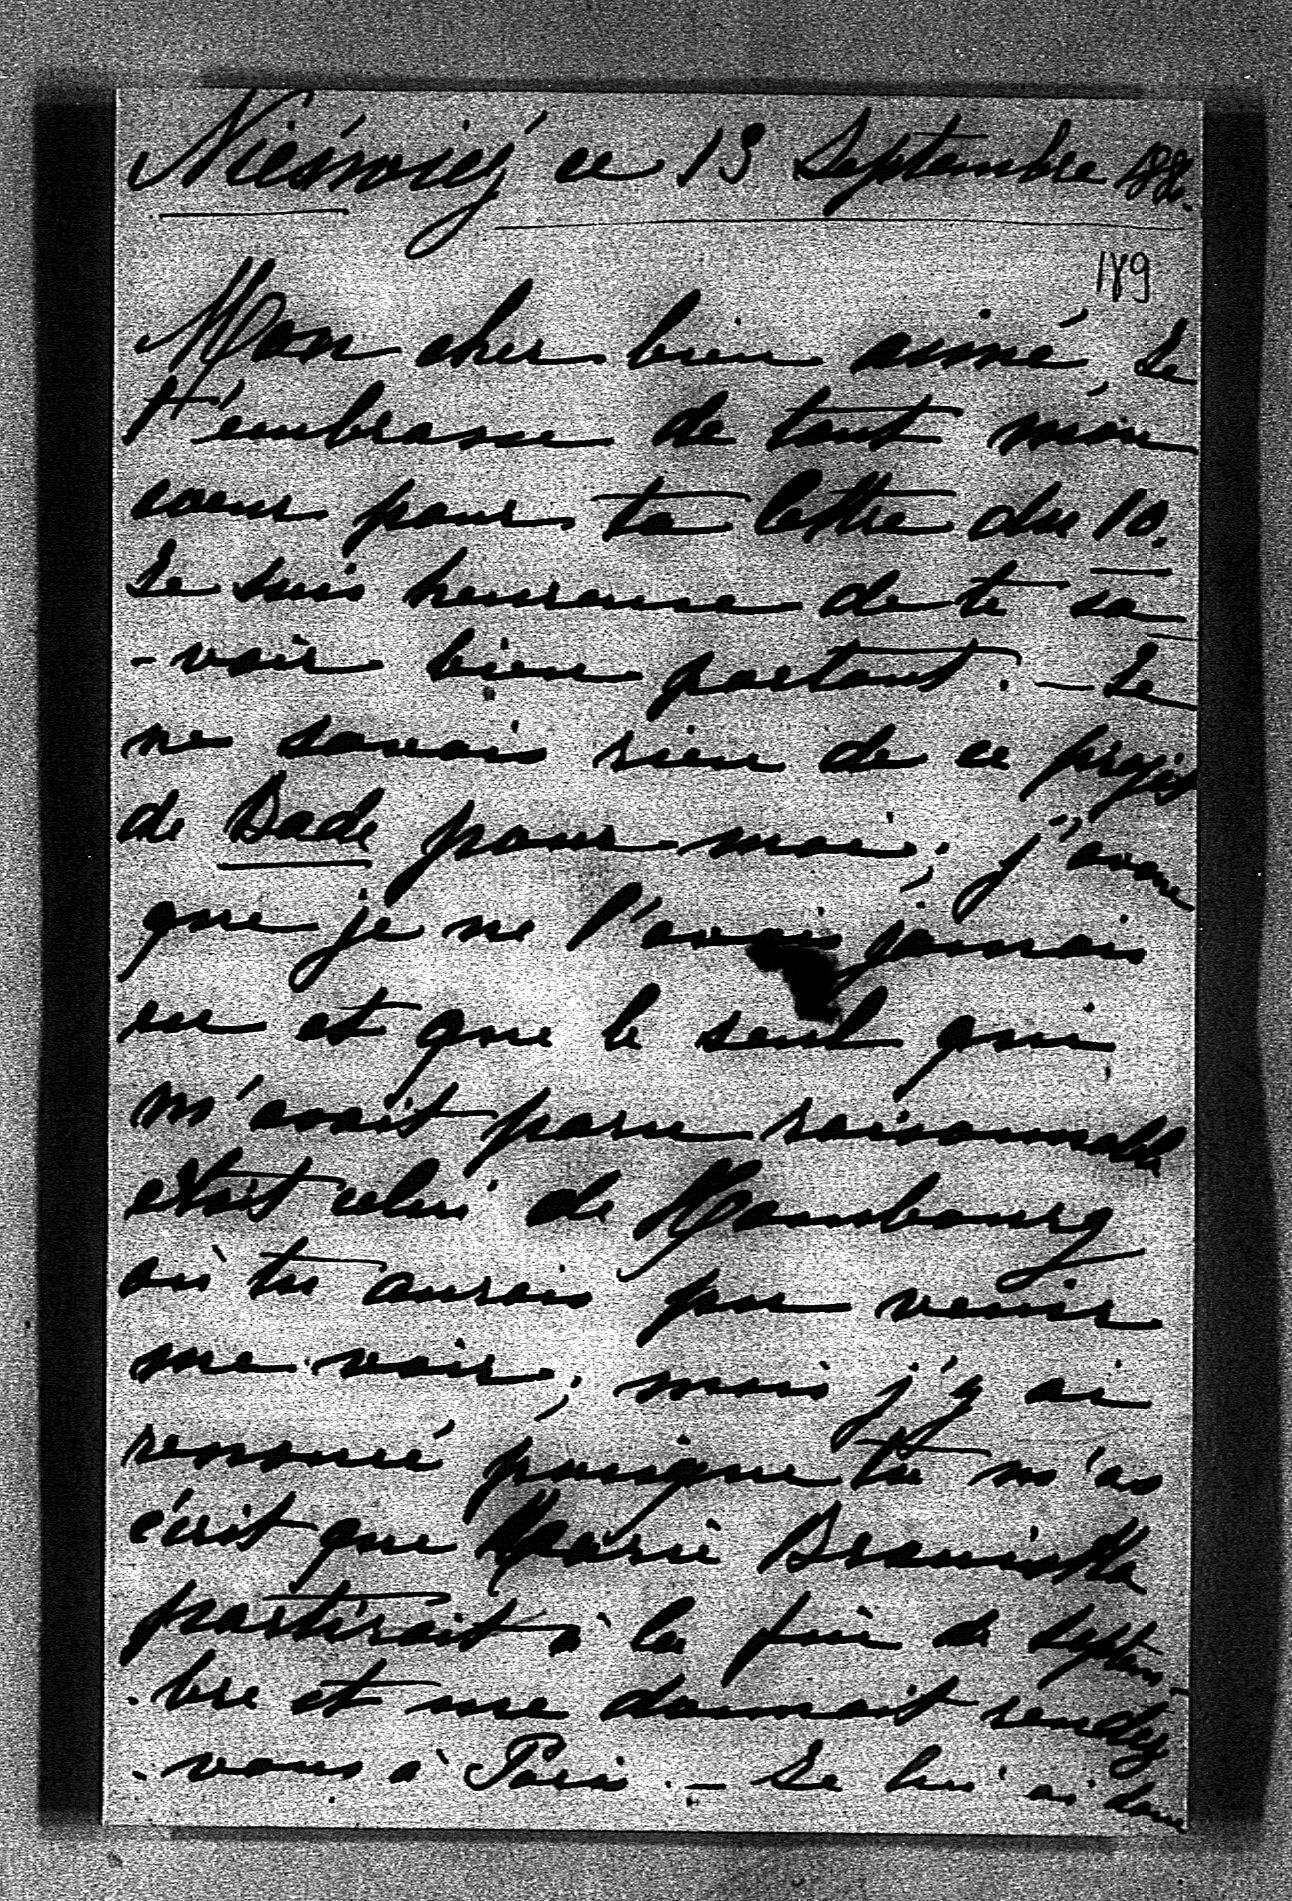 Nieśwież ce 13 Septembre 88.
189
Mon cher bien aimé, Je
t'embrasse de tout mon
coeur pour ta lettre du 10.
Je suis heureuse de te sa
-voir bien portant. — Je
ne savais rien de ce projet
de Bade pour moi; j'avoue
que je ne l'avais jamais
eu et que le seul qui
m'avait paru raisonnable
était celui de Hombourg
où tu aurais pu venir
me voir; mais j'y ai
renoncé puisque tu m'as
écrit que Marie Branicka
partirait à la fin de septem-
-bre et me donnait rendez
-vous à Paris. — Je lui ai donc